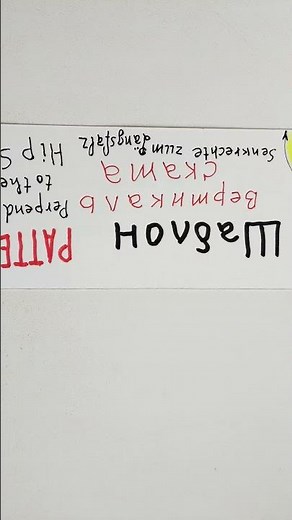 Шаблон
Вертикаль
ската
Senkrechte zum
Längsfalz
PATTE
Perpend
to the
Hip S